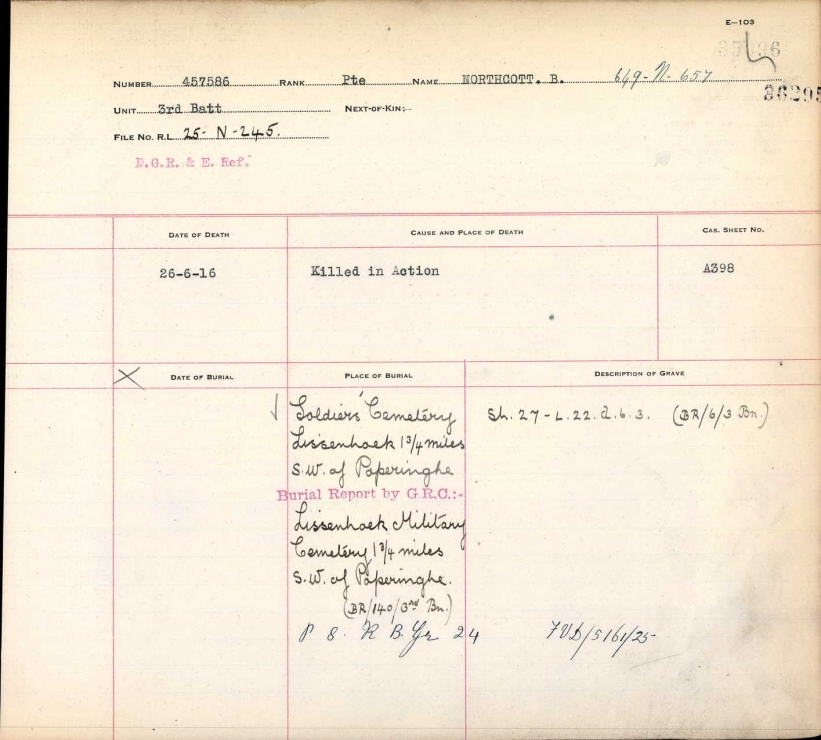 E-103
NUMBER 457586 RANK Pte NAME NORTHCOTT. B. 649-N-657
36295
UNIT 3rd Batt NEXT-OF-KIN:-
FILE NO. R.L. 25-N-245.
D.G.R. & E. Ref.
DATE OF DEATH CAUSE AND PLACE OF DEATH CAS. SHEET NO.
26-6-16 Killed in Action A398
X DATE OF BURIAL PLACE OF BURIAL DESCRIPTION OF GRAVE
Soldiers' Cemetery Sh. 27-L.22.d.6.3. (BR/6/3 Bn.)
Lissenhoek 1 3/4 miles
S.W. of Poperinghe
Burial Report by G.R.C.:-
Lissenhoek Military
Cemetery 1 3/4 miles
S.W. of Poperinghe.
(BR/140/3rd Bn.)
P 8. R B. Gr 24 7VD/5161/25